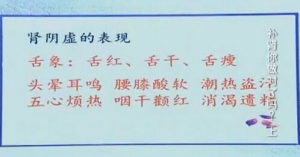 肾阴虚的表现
舌象：舌红、舌干、舌瘦
头晕耳鸣 腰膝酸软 潮热盗汗
五心烦热 咽干颧红 消渴遗精